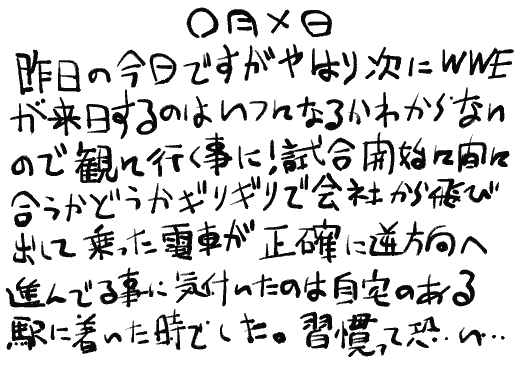 〇月×日
昨日の今日ですがやはり次にWWE
が来日するのはいつになるかわからない
ので観に行く事に!試合開始に間に
合うかどうかギリギリで会社から飛び
出して乗った電車が正確に逆方向へ
進んでる事に気付いたのは自宅のある
駅に着いた時でした。習慣って恐…い…